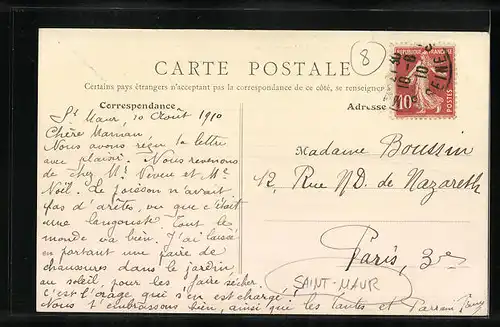 8
CARTE POSTALE
Certains pays étrangers n'acceptant pas la correspondance de ce côté, se renseigner
Correspondance
Adresse
RÉPUBLIQUE FRANÇAISE
10c
POSTES
St Maur, 10 Août 1910
Chère Maman,
Nous avons reçu ta lettre
avec plaisir. Nous revenons
de chez Mr Viveu et Me
Noël. Le poisson n'avait
pas d'arêtes, vu que c'était
une langouste. Tout le
monde va bien. J'ai laissé
en partant une paire de
chaussures dans le jardin
au soleil, pour les faire sécher.
c'est l'orage qui s'en est chargé,
Nous t'embrassons bien, ainsi que les tantes et Parrain
Madame Boussin
12, Rue N.D. de Nazareth
Paris, 3e
SAINT-MAUR